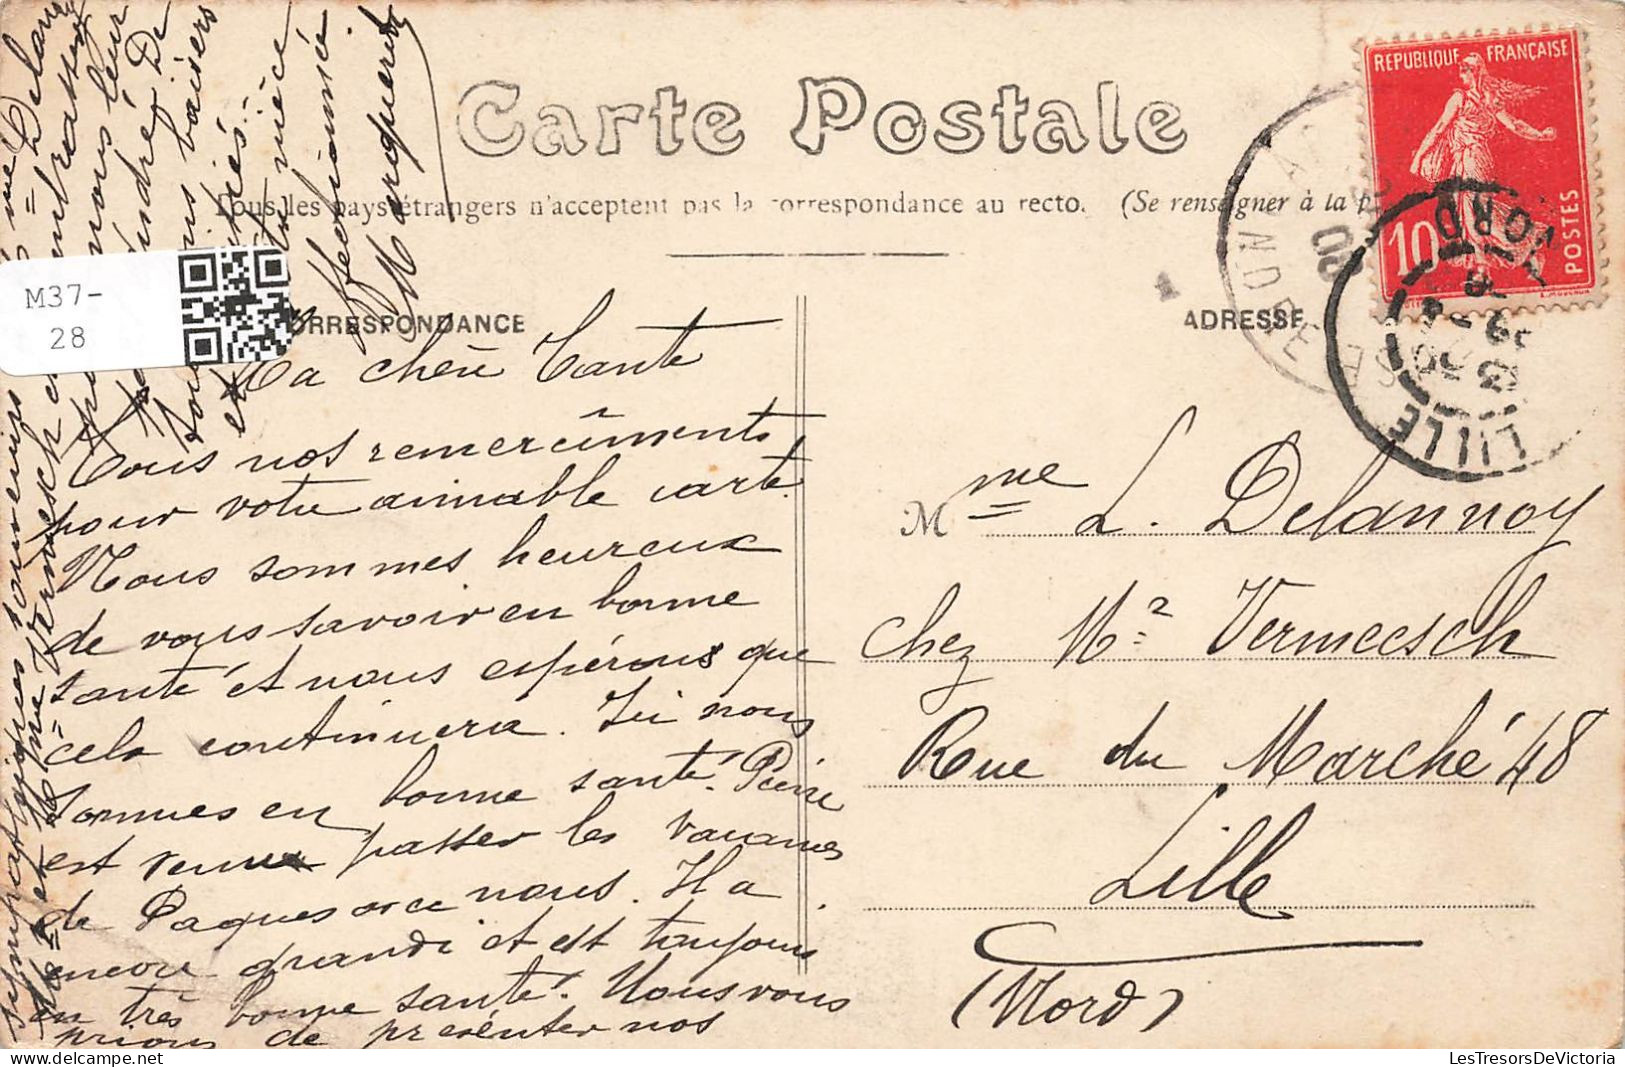 Carte Postale
Tous les pays étrangers n'acceptent pas la correspondance au recto. (Se renseigner à la
CORRESPONDANCE
ADRESSE
REPUBLIQUE FRANÇAISE
10
POSTES
LILLE
NORD
M37-
28
Ma chère Tante
Tous nos remerciments
pour votre aimable carte.
Nous sommes heureux
de vous savoir en bonne
santé et nous espérons que
cela continuera. Ici nous
sommes en bonne santé. Pierre
est venu passer les vacances
de Paques avec nous. Il a
encore grandi et est toujours
en très bonne santé. Nous vous
prions de présenter nos
sympathiques souvenirs
à Mr et Mme Vermesch
Delannoy
embrassons
pour nous leur
André De
bons baisers
et
votre nièce
affectionnée.
Marguerite
Mme L. Delannoy
chez Mr Vermeesch
Rue du Marché 48
Lille
(Nord)
LesTresorsDeVictoria